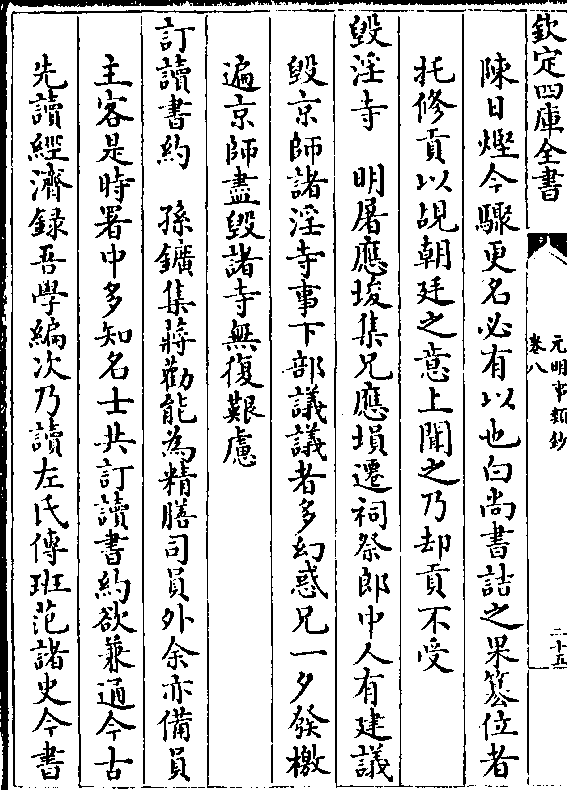 欽定四庫全書
元明事類鈔
卷八
二十五
陳日煃今驟更名必有以也白尚書詰之果簒位者
托修貢以覘朝廷之意上聞之乃却貢不受
毀淫寺　明屠應埈集兄應塤遷祠祭郎中人有建議
毀京師諸淫寺事下部議議者多幻惑兄一夕發檄
遍京師盡毀諸寺無復艱慮
訂讀書約　孫鑛集蔣勸能為精膳司員外余亦備員
主客是時署中多知名士共訂讀書約欲兼通今古
先讀經濟録吾學編次乃讀左氏傳班范諸史今書